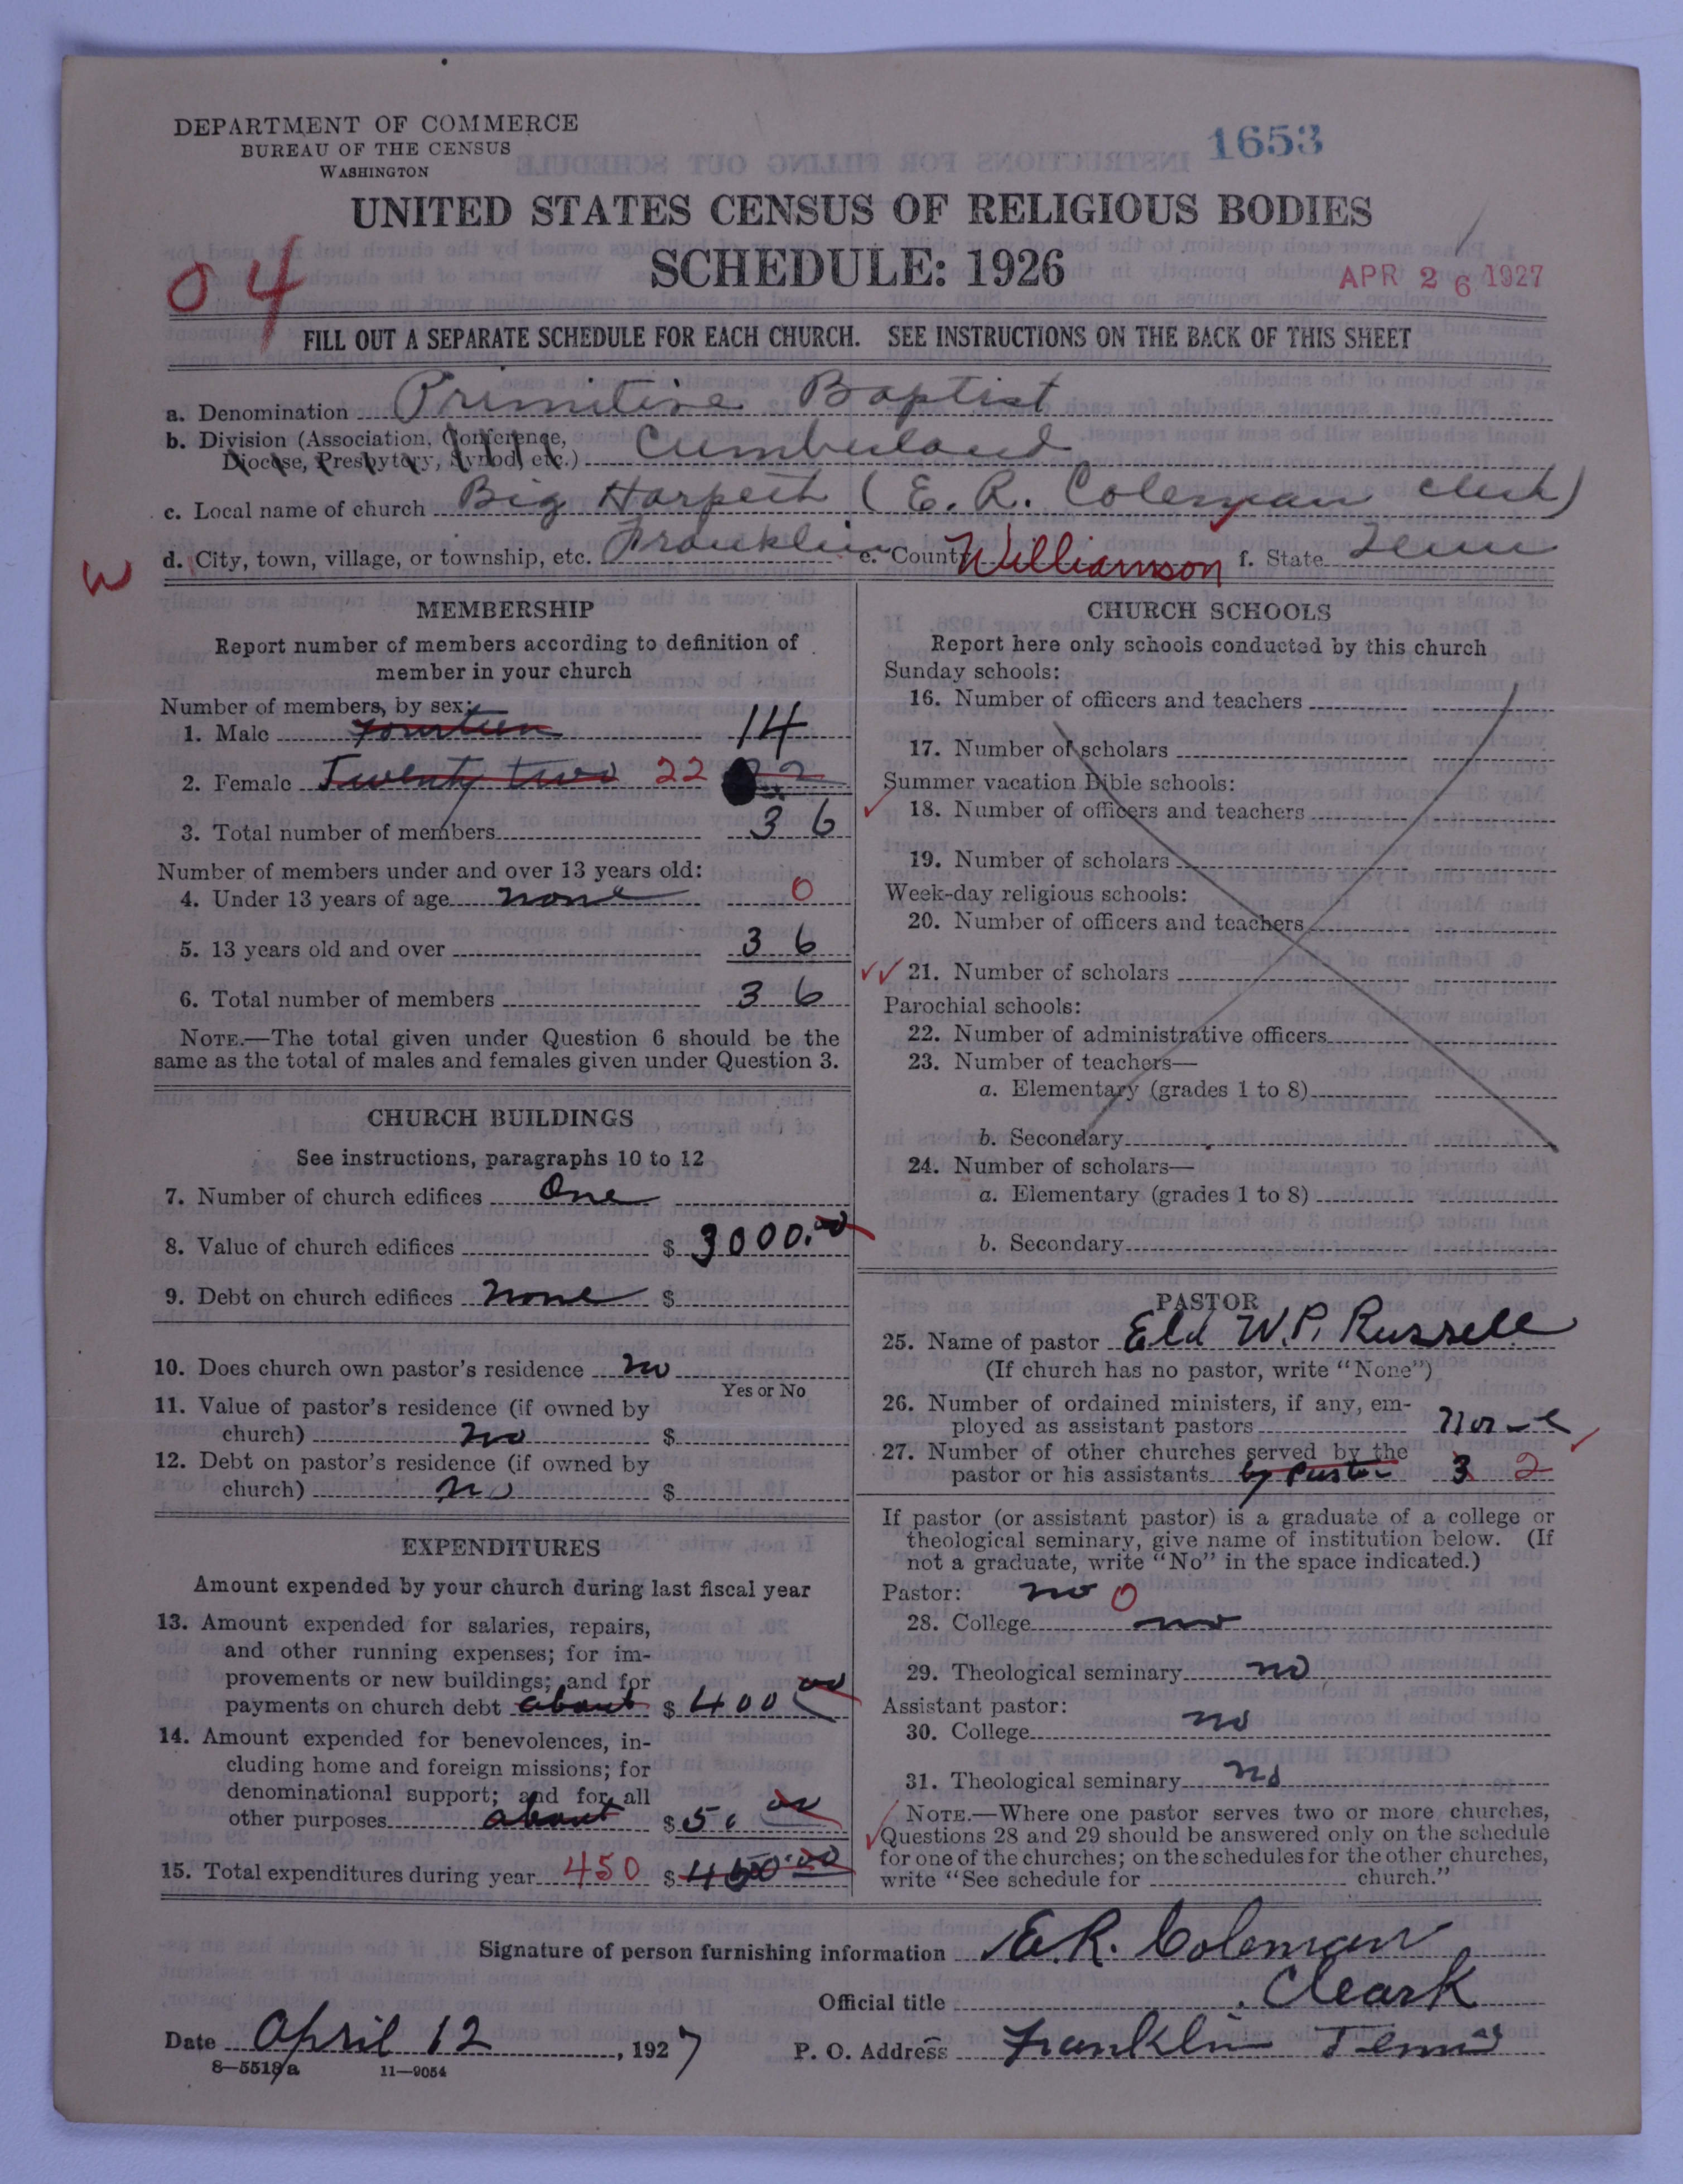 DEPARTMENT OF COMMERCE
BUREAU OF THE CENSUS
WASHINGTON
1653
UNITED STATES CENSUS OF RELIGIOUS BODIES
SCHEDULE: 1926
04
APR 26 1927
FILL OUT A SEPARATE SCHEDULE FOR EACH CHURCH. SEE INSTRUCTIONS ON THE BACK OF THIS SHEET
a. Denomination Primitive Baptist
b. Division (Association, Conference,
Diocese, Presbytery, Synod, etc.) Cumberland
c. Local name of church Big Harpeth (E. R. Coleman clerk)
W d. City, town, village, or township, etc. Franklin e. County Williamson f. State Tenn
MEMBERSHIP
Report number of members according to definition of
member in your church
Number of members, by sex:
1. Male fourteen 14
2. Female Twenty two 22 22
3. Total number of members 36
Number of members under and over 13 years old:
4. Under 13 years of age none 0
5. 13 years old and over 36
6. Total number of members 36
NOTE.—The total given under Question 6 should be the
same as the total of males and females given under Question 3.
CHURCH BUILDINGS
See instructions, paragraphs 10 to 12
7. Number of church edifices One
8. Value of church edifices $ 3000.00
9. Debt on church edifices none $
10. Does church own pastor's residence no
Yes or No
11. Value of pastor's residence (if owned by
church) no $
12. Debt on pastor's residence (if owned by
church) no $
EXPENDITURES
Amount expended by your church during last fiscal year
13. Amount expended for salaries, repairs,
and other running expenses; for im-
provements or new buildings; and for
payments on church debt about $ 400 00
14. Amount expended for benevolences, in-
cluding home and foreign missions; for
denominational support; and for all
other purposes about $ 50 00
15. Total expenditures during year 450 $ 450.00
CHURCH SCHOOLS
Report here only schools conducted by this church
Sunday schools:
16. Number of officers and teachers
17. Number of scholars
Summer vacation Bible schools:
18. Number of officers and teachers
19. Number of scholars
Week-day religious schools:
20. Number of officers and teachers
21. Number of scholars
Parochial schools:
22. Number of administrative officers
23. Number of teachers—
a. Elementary (grades 1 to 8)
b. Secondary
24. Number of scholars—
a. Elementary (grades 1 to 8)
b. Secondary
PASTOR
25. Name of pastor Eld W. P. Russell
(If church has no pastor, write "None")
26. Number of ordained ministers, if any, em-
ployed as assistant pastors None
27. Number of other churches served by the
pastor or his assistants by Pastor 3 2
If pastor (or assistant pastor) is a graduate of a college or
theological seminary, give name of institution below. (If
not a graduate, write "No" in the space indicated.)
Pastor: no 0
28. College no
29. Theological seminary no
Assistant pastor:
30. College no
31. Theological seminary no
NOTE.—Where one pastor serves two or more churches,
Questions 28 and 29 should be answered only on the schedule
for one of the churches; on the schedules for the other churches,
write "See schedule for church."
Signature of person furnishing information E. R. Coleman
Official title Cleark
Date April 12, 1927 P. O. Address Franklin Tenn
8—5518a 11—9054